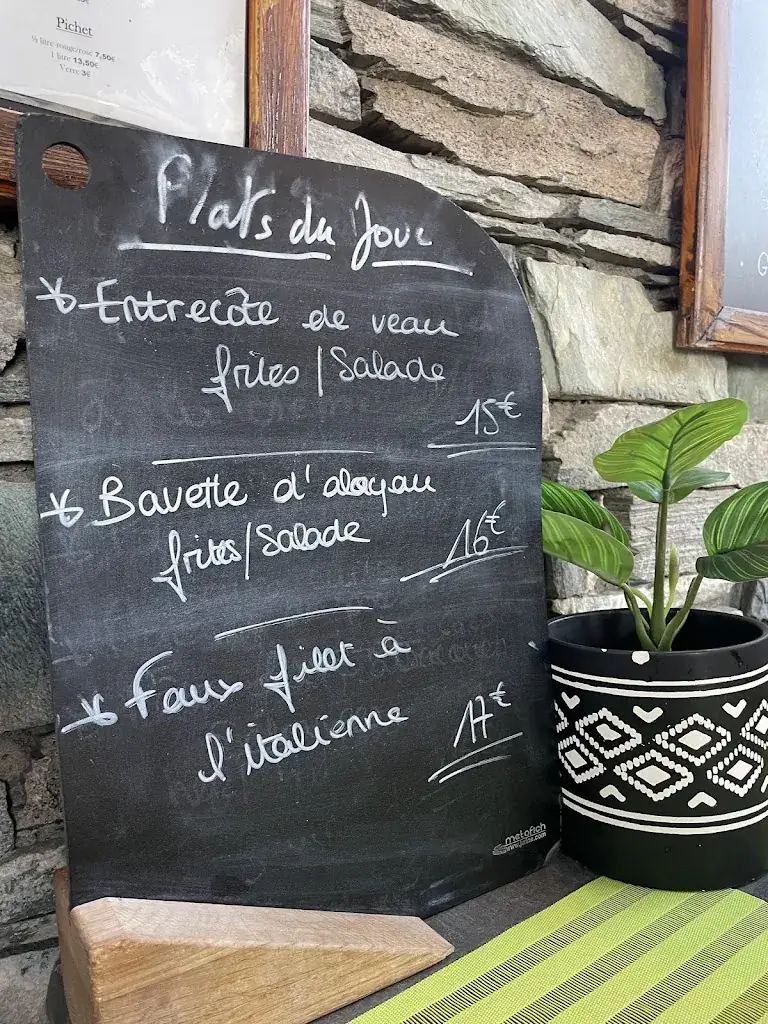 Pichet
½ litre rouge/rosé 7,50€
1 litre 13,50€
Verre 3€
Plats du Jour
Entrecôte de veau
frites/Salade
15€
Bavette d'aloyau
frites/Salade
16€
Faux filet à
l'italienne
17€
metafich
G